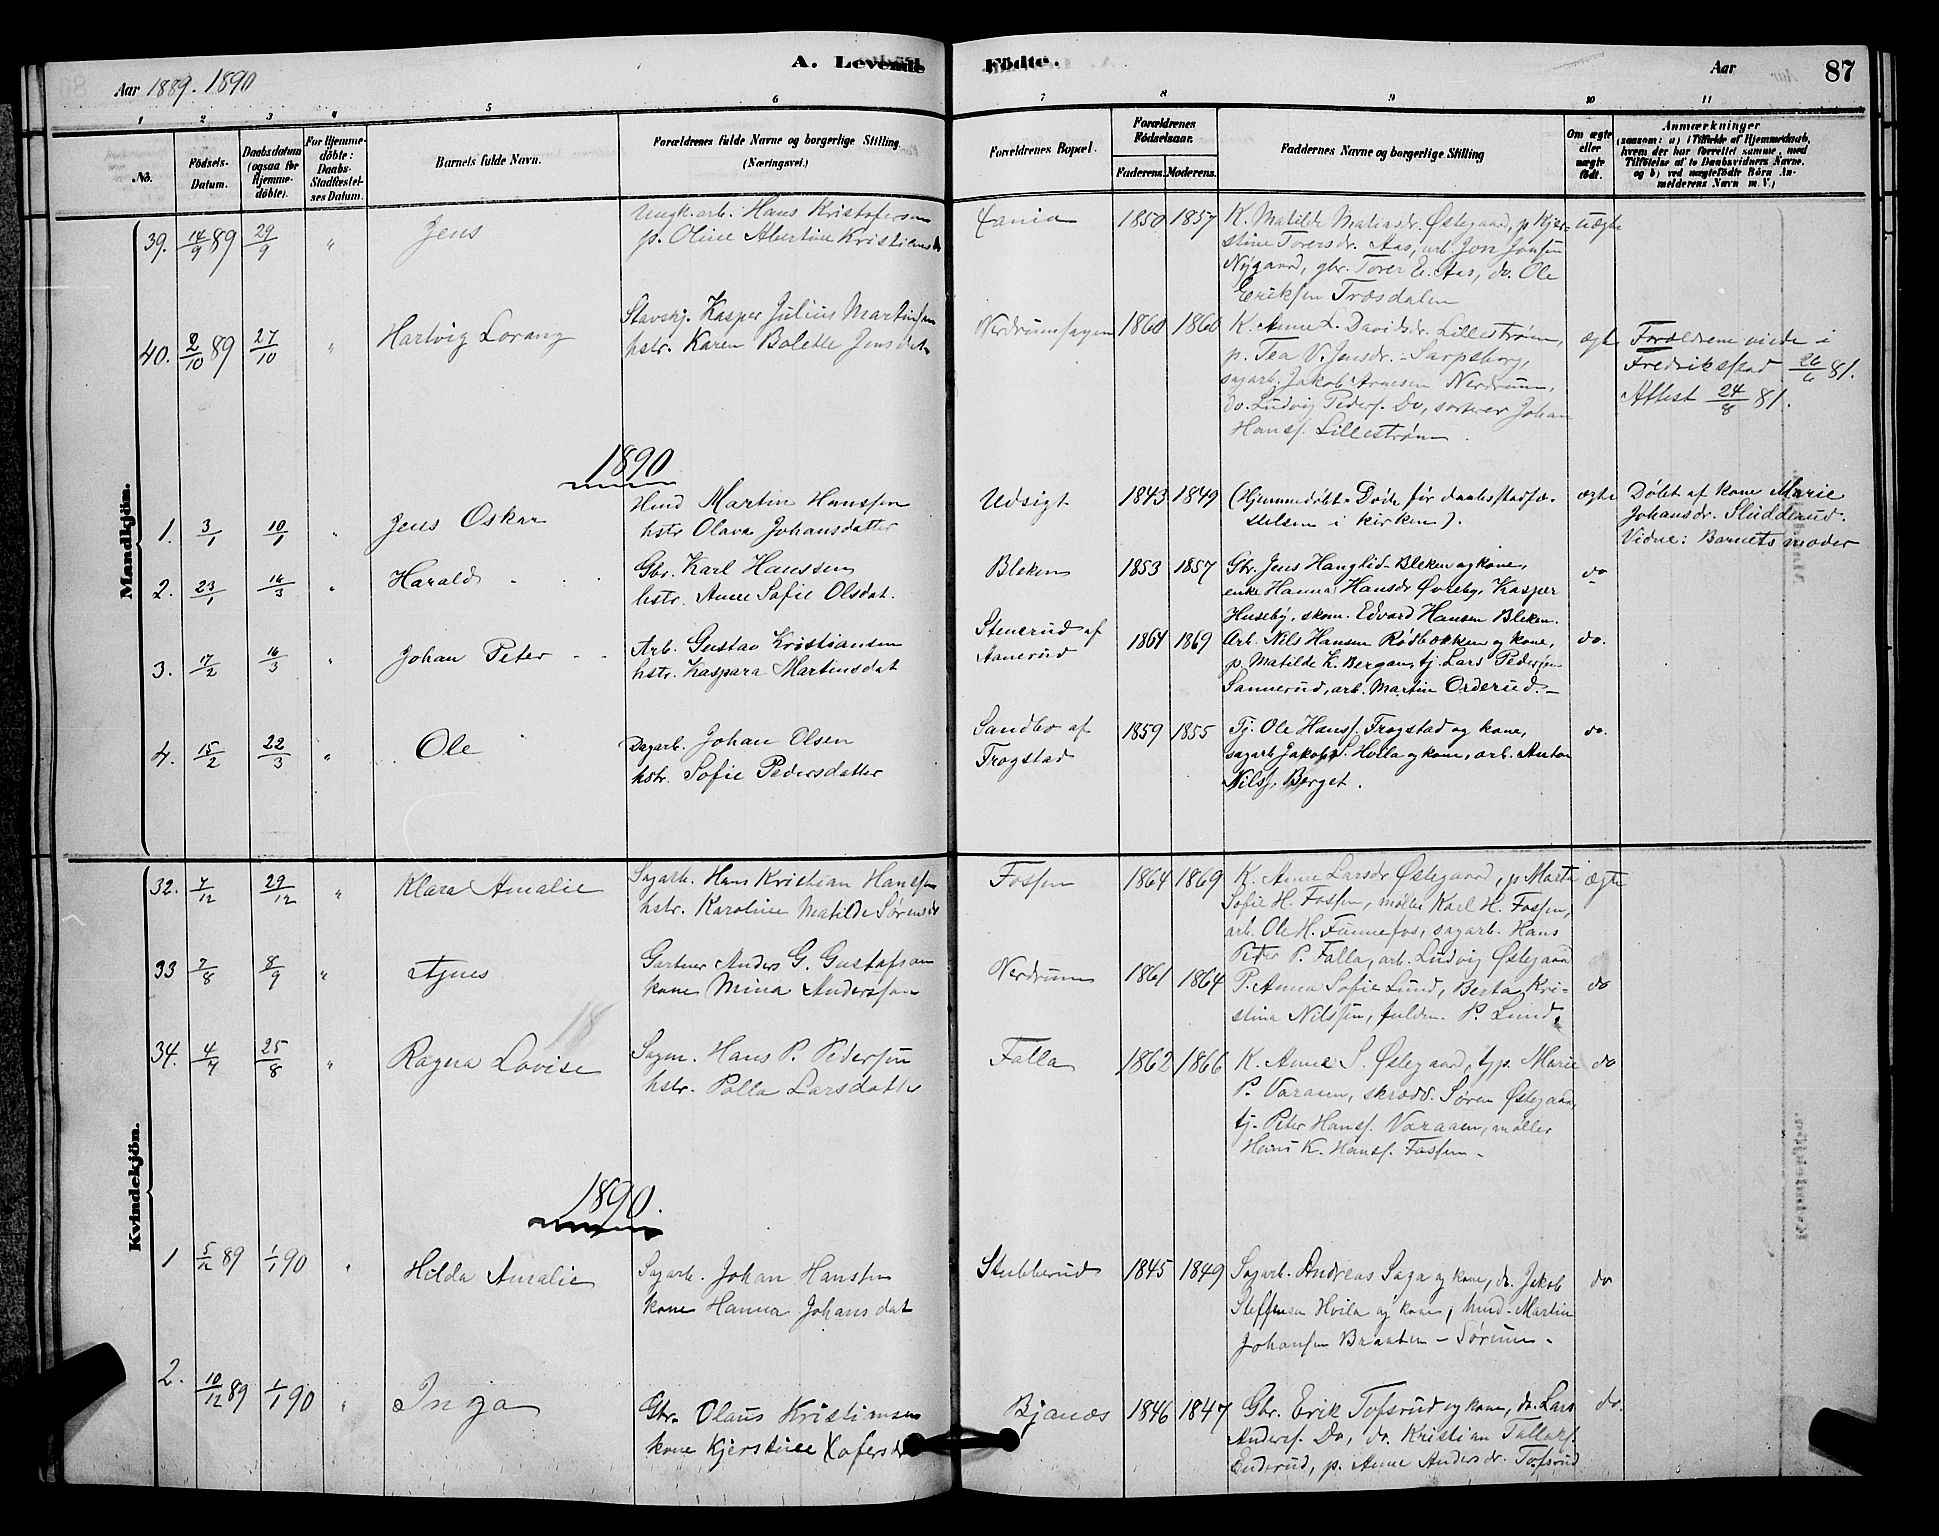 Aar 1889. 1890
A. Levende Födte.
Aar
87
1 2 3 4 5 6 7 8 9 10 11
No. Födsels-Datum. Daabsdatum (ogsaa for Hjemme-döbte). For Hjemme-döbte: Daabs-Stadfæstel-ses Datum. Barnets fulde Navn. Forældrenes fulde Navne og borgerlige Stilling (Næringsvei.) Forældrenes Bopæl. Forældrenes Födselsaar. Faderens. Moderens. Faddernes Navne og borgerlige Stilling Om ægte eller uægte födt. Anmærkninger
(saasom: a) i Tilfælde af Hjemmedaab, hvem der har forrettet samme, med Tilföielse af to Daabsvidners Navne, og b) ved uægtefödte Börn An-melderens Navn m. V.)
Mandkjön.
39. 14/9 89 29/9 " Jens
Ungk. arb. Hans Kristofersen
p. Oline Abertine Kristiansd
1850 1857
K. Matilde Matiasdr. Østegaard, p Kjer-
stine Torersdr. Aas, arb. Jon Jonsen
Nygaard, gbr. Torer E. Aas, do. Ole
Eriksen Træsdalen
uægte
40. 2/10 89 27/10 " Hartvig Lorang
Stavskj. Kasper Julius Martinsen
hstr. Karen Bolette Jensdat
Nerdrumsagen 1860 1860
K. Anne L. Davidsdr. Lillestrøm,
p. Tea V. Jensdr. - Sarpsborg,
sagarb. Jakob Arnesen Nerdrum,
do. Ludvig Peders. Do, sorterer Johan
Hans. Lillestrøm.
ægte
Forældrene viede i
Fredrikstad 26/6 81.
Attest 24/8 81.
1890
1. 3/1 10/1 " Jens Oskar
Hmd Martin Hanssen
hstr Olava Johansdatter
Udsigt 1843 1849
(Hjemmedøbt. Døde før daabsstadfæ-
stelsen i kirken).
ægte
Døbt af kone Marie
Johansdr. Sluddeaud.
Vidne: Barnets moder
2. 23/1 16/3 " Harald
Gbr. Karl Hanssen
hstr. Anne Sofie Olsdat.
Bleken 1853 1857
Gbr. Jens Hanglid-Bleken og kone,
enke Hanna Hansdr Øvreby, Kasper
Huseby, skom. Edvard Hansen Bleken.
do
3. 17/2 16/3 " Johan Peter
Arb. Gustav Kristiansen
hstr. Kaspara Martinsdat
Stenerud af
Aanerud
1864 1869
Arb. Nils Hansen Rødbækken og kone,
p. Matilde K. Bergan, tj. Lars Pedersen
Sannerud, arb. Martin Orderud.
do.
4. 15/2 22/3 " Ole
Dagarb. Johan Olsen
hstr. Sofie Pedersdatter
Sandbo af
Frogstad
1859 1855
Tj. Ole Hans. Frogstad og kone,
sagarb. Jakob S. Hvila og kone, arb. Anton
Nils. Berget.
do.
Kvindekjön.
32. 7/12 29/12 " Klara Amalie
Sagarb. Hans Kristian Hanssen
hstr. Karoline Matilde Sørensd
Fossen 1864 1869
K. Anne Larsdr Østegaard, p Marte
Sofie H. Fossen, møller Karl H. Fossen,
arb. Ole H. Funnefos, sagarb. Hans
Peder P. Falla, arb. Ludvig Østegaard
ægte
33 2/8 8/9 " Agnes
Gartner Anders G. Gustafson
kone Mina Andersson
Nerdrum 1861 1864
P. Anna Sofie Lund, Berta Kri-
stina Nilssen, P. Lund.
do
34. 4/7 25/8 " Ragna Lovise
Sagm. Hans P. Pedersen
hstr. Polla Larsdatter
Falla 1862 1866
K. Anne S. Østegaard, Marie
P. Varaaen, skræd. Søren Østegaard,
tj. Peter Hans. Varaaen, møller
Hans K. Hans. Fossen.
do
1890.
1 5/12 89 1/1 90 " Hilda Amalie
Sagarb. Johan Hanssen
kone Hanna Johansdat
Stubberud 1845 1849
Sagarb. Andreas Saga og kone, do. Jakob
Steffensen Hvila og kone, hmd. Martin
Johansen Braaten - Sørum.
do
2. 10/12 89 1/1 90 " Inga
Gbr. Olaus Kristiansen
kone Kjerstine
Bjanæs 1846 1847
Gbr. Erik Tofsrud og kone, do. Lars
Anders. Do, do. Kristian
Enderud, p. Anne Andersdr. Tofsrud
do.